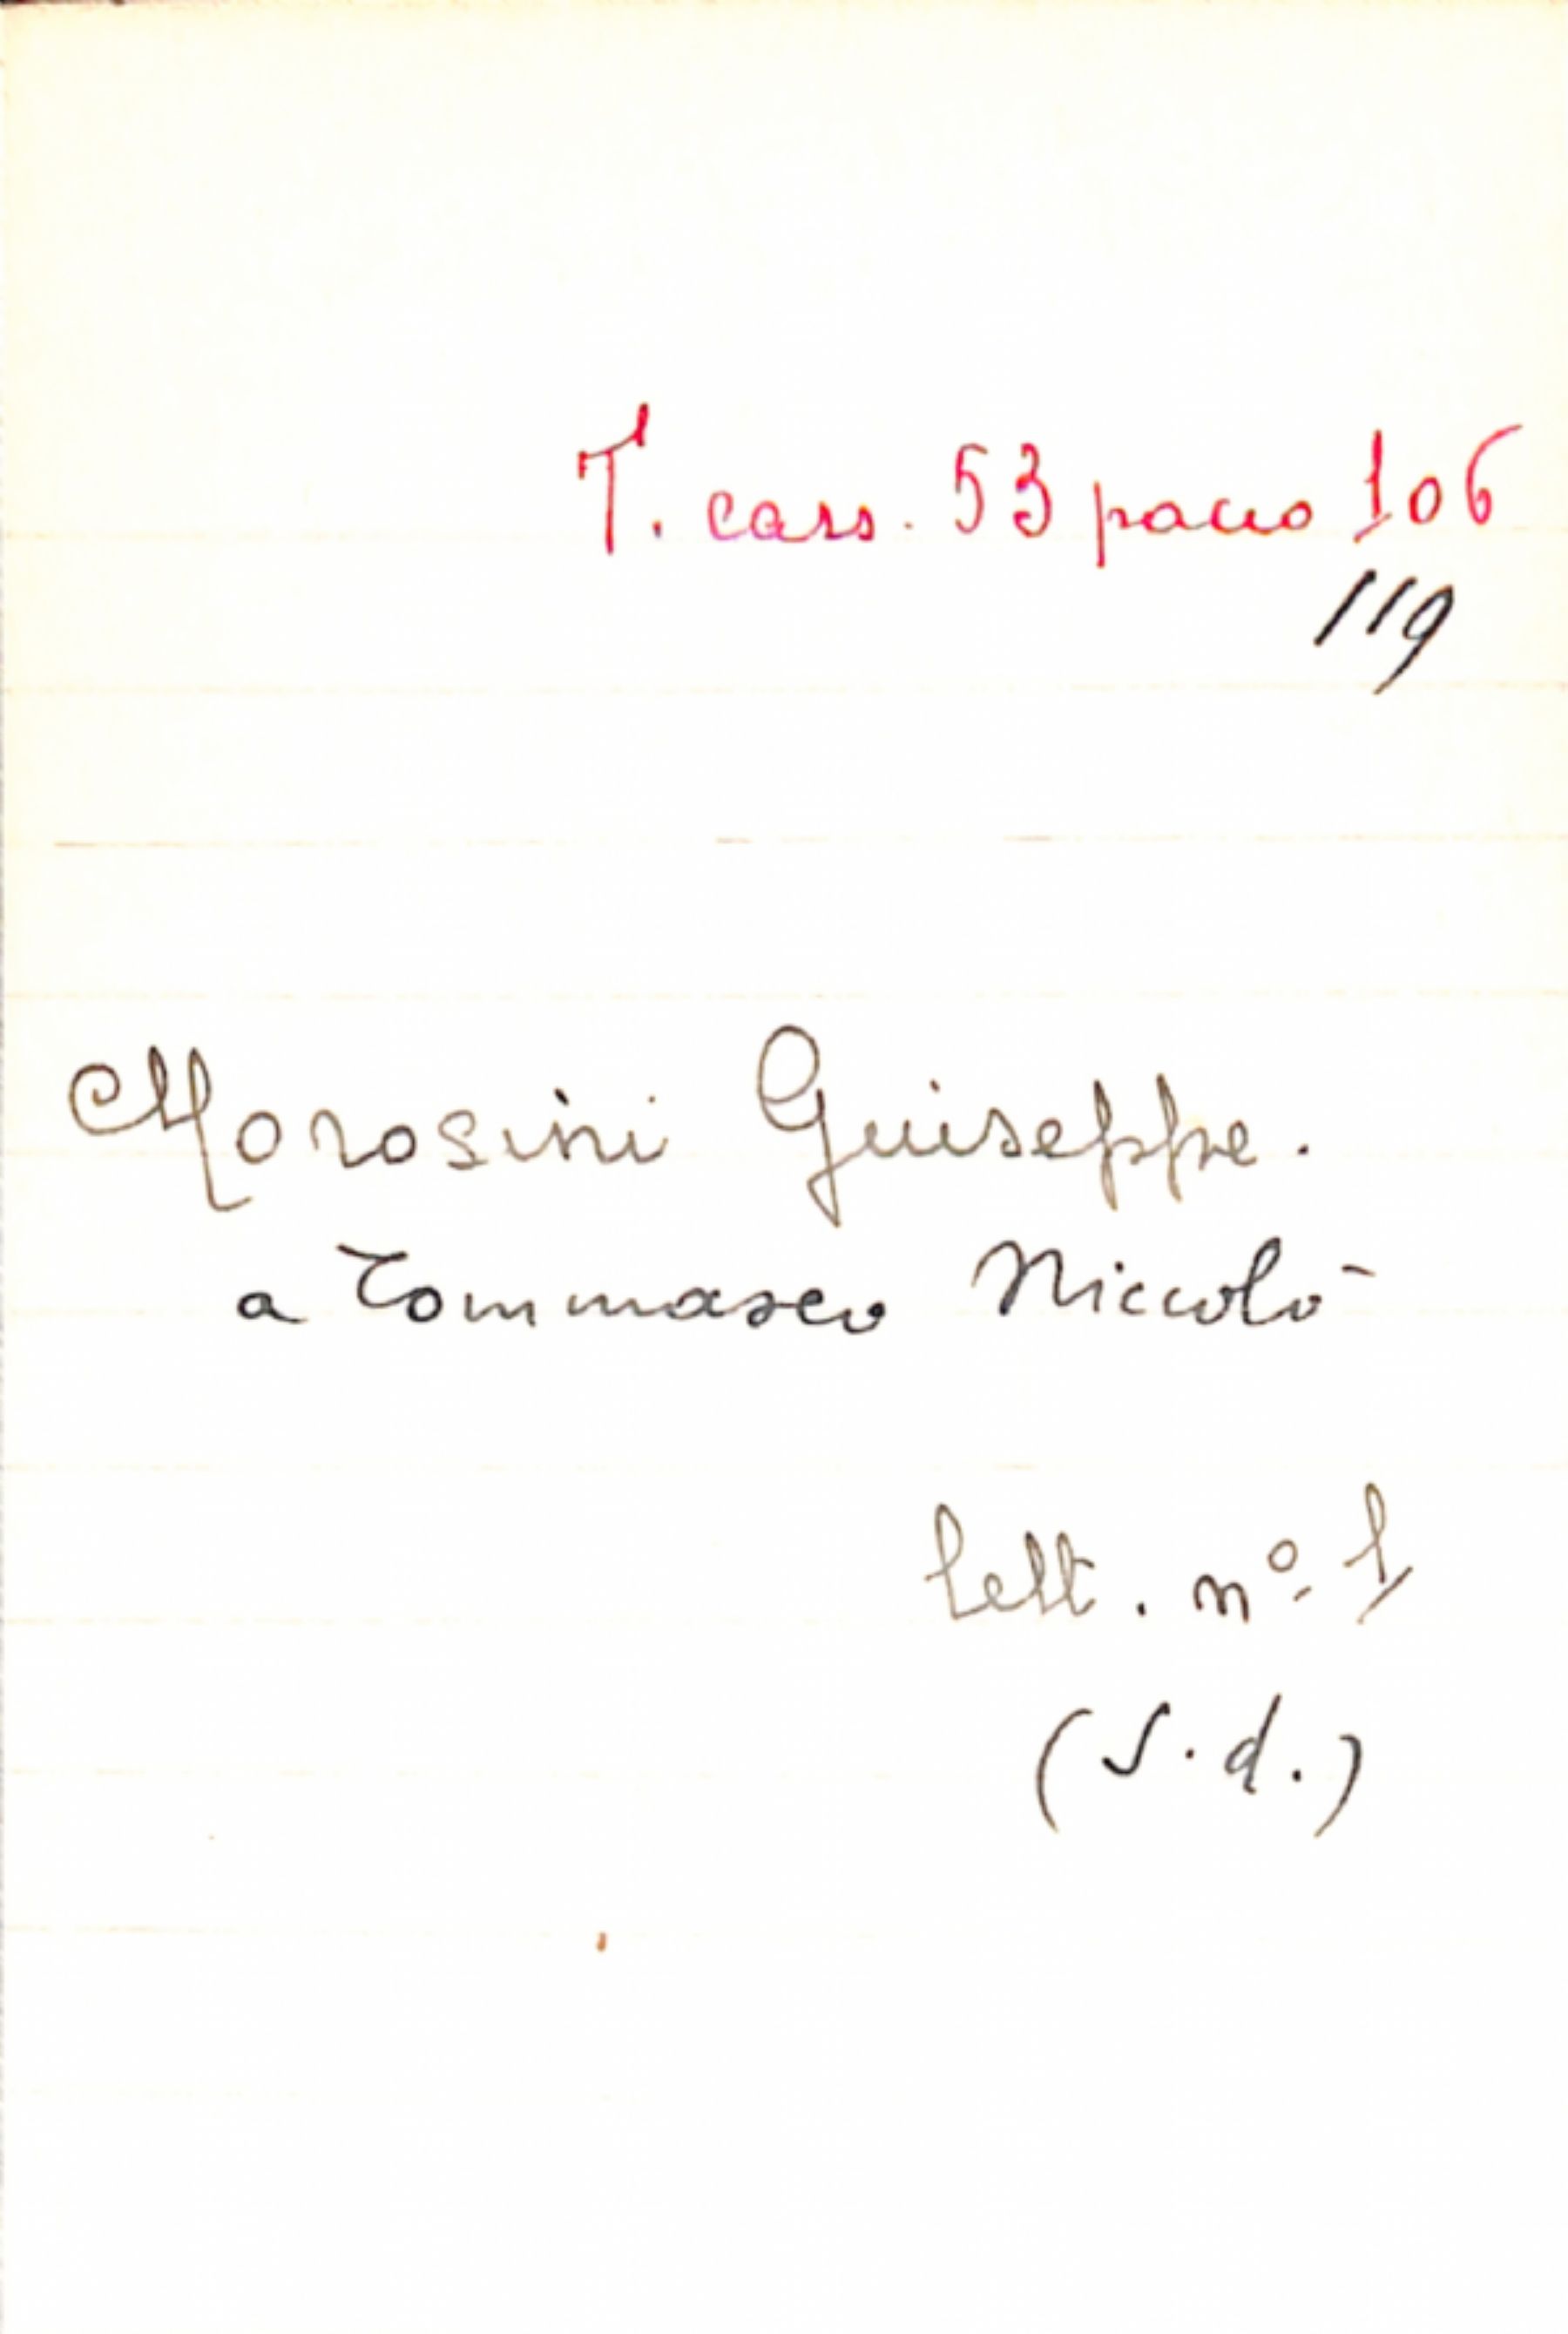 T. cass. 53 pacco 106
119
Morosini Giuseppe.
a Tommaseo Niccolò
lett. nº 1
(S.d.)